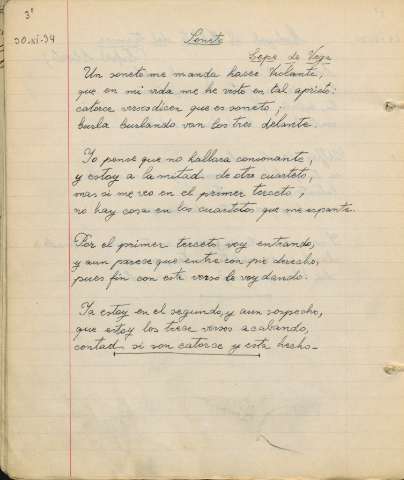 3º
Soneto
20.XI.34
Lope de Vega
Un soneto me manda hacer Violante;
que en mi vida me he visto en tal aprieto:
catorce versos dicen que es soneto;
burla burlando van los tres delante.
Yo pensé que no hallara consonante,
y estoy a la mitad de otro cuarteto,
mas si me veo en el primer terceto,
no hay cosa en los cuartetos que me espante.
Por el primer terceto voy entrando,
y aun parece que entré con pie derecho,
pues fin con este verso le voy dando.
Ya estoy en el segundo, y aun sospecho,
que estoy los trece versos acabando,
contad si son catorce y está hecho.